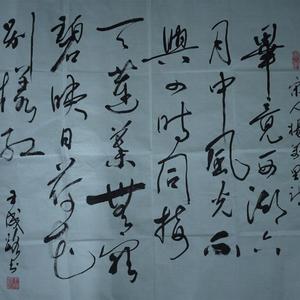 宋人楊萬里詩
畢竟西湖六
月中風光不
與四時同接
天蓮葉無窮
碧映日荷花
別樣紅